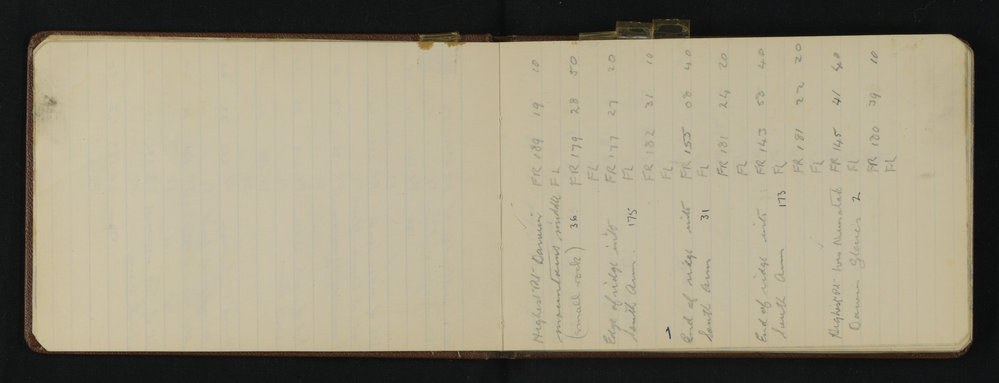 Highest Pt Darwin FR 189 19 10
mountains middle FL
(small rock) 36 FR 179 28 50
FL
Edge of ridge into FR 177 27 20
South Arm. 175 FL
FR 182 31 10
FL
End of ridge into FR 155 08 40
South Arm 31 FL
FR 181 24 20
FL
End of ridge into FR 143 58 40
South Arm 173 FL
FR 181 22 20
FL
Highest Pt Nunatak FR 145 41 40
Darwin Glacier 2 FL
FR 180 39 10
FL